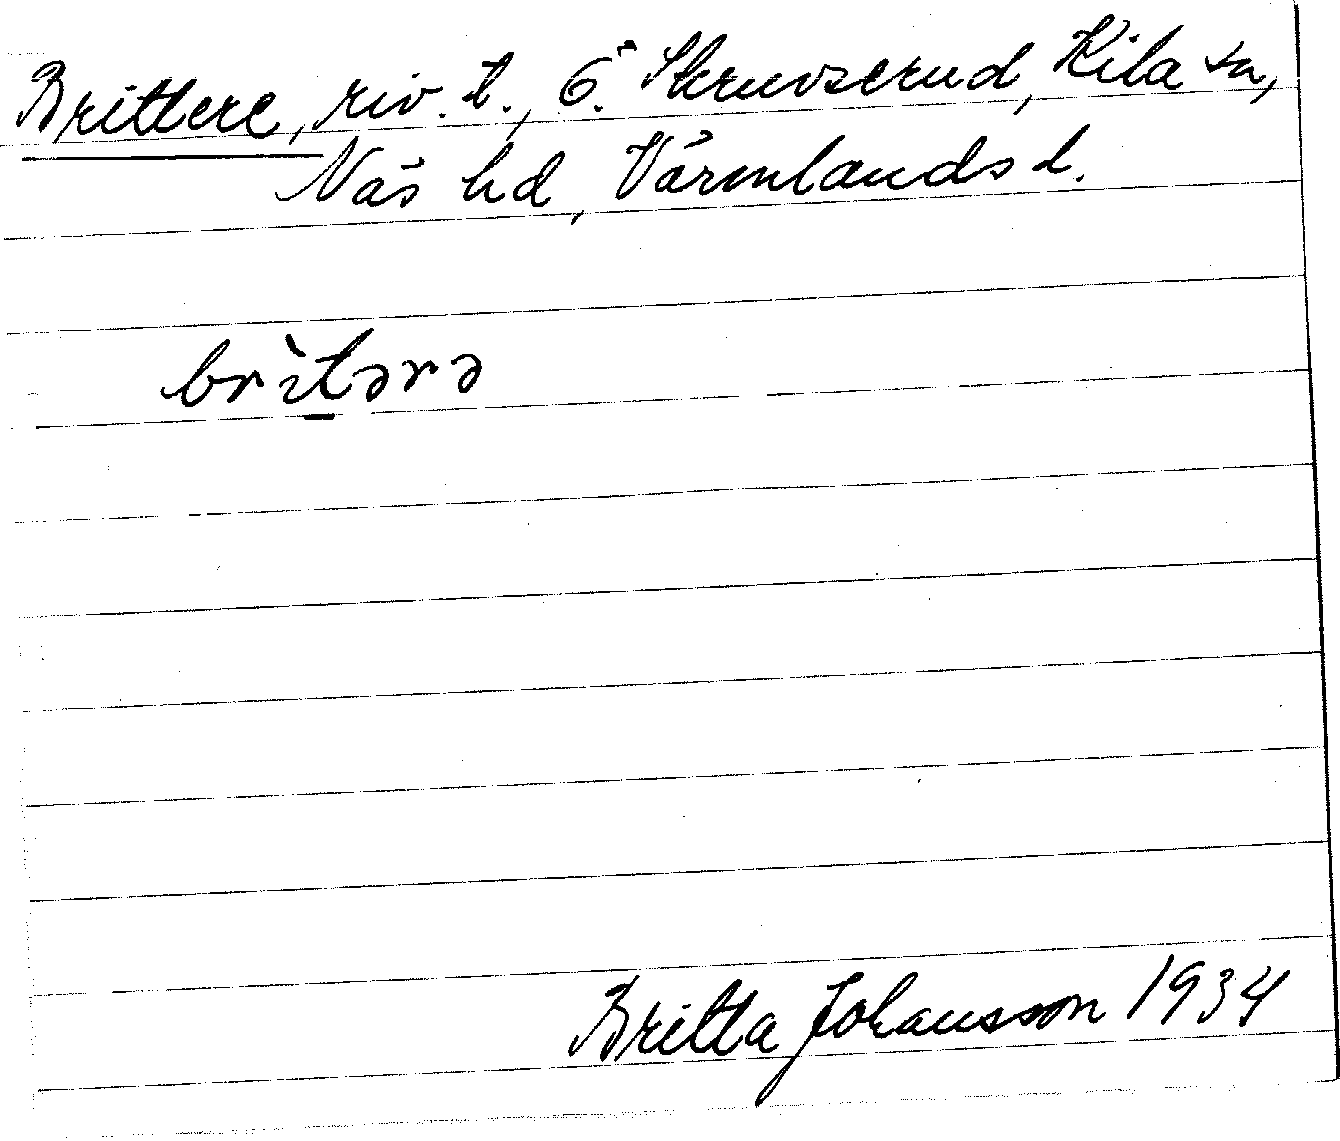 Brittere, riv. t., Ö. Skruvserud, Kila sn,
Näs hd, Värmlands l.
brìt̲ərə
Britta Johansson 1934